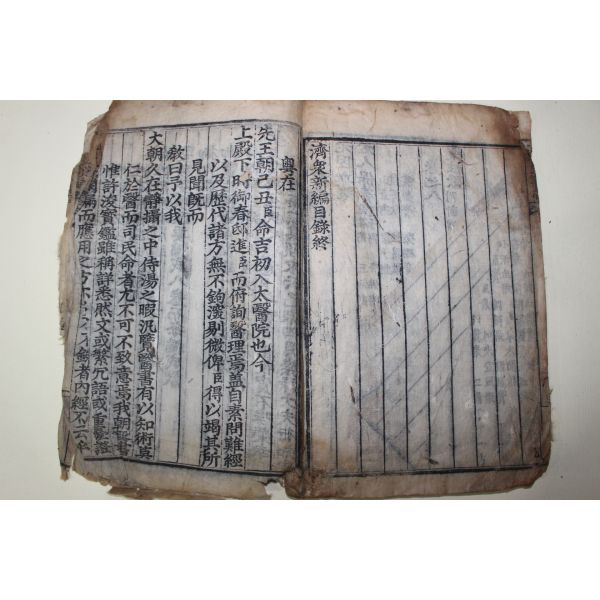 濟衆新編目錄終
粤在
先王朝己丑臣命吉初入太醫院也今
上殿下時御春邸進臣而俯詢醫理焉蓋自素問難經
以及歷代諸方無不鉤深剔微俾臣得以竭其所
見聞旣而
敎曰予以我
大朝久在靜攝之中侍湯之暇汎覽醫書有以知術莫
仁於醫而司民命者尤不可不致意焉我朝醫書
惟許浚寶鑑雖稱詳悉然文或繁冗語或重疊證
而應用之方亦 者內經不